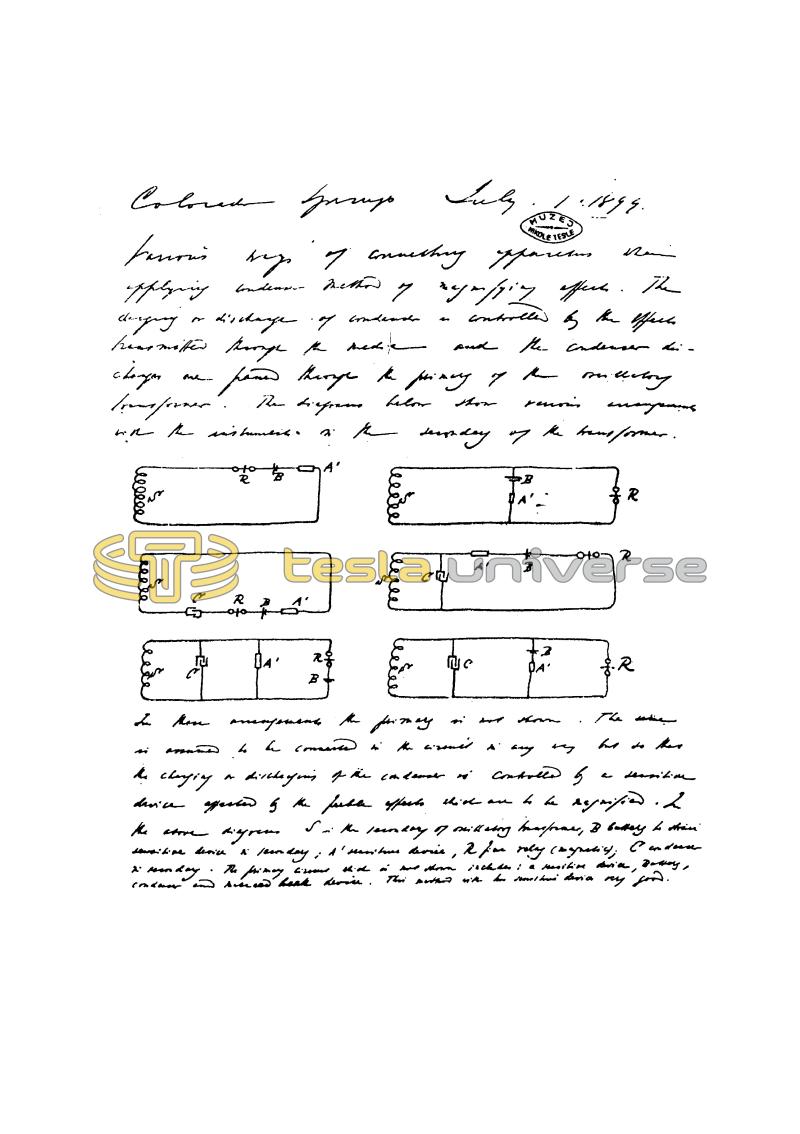 Colorado Springs July. 1. 1899.
MUZEJ
NIKOLE TESLE
Various ways of connecting apparatus when
applying condenser method of magnifying effects. The
charging or discharge of condenser is controlled by the effects
transmitted through the media and the condenser dis-
charges are passed through the primary of the oscillatory
transformer. The diagrams below show various arrangements
with the instruments in the secondary of the transformer.
S R B A'
S B A' R
tesla universe
S C R B A'
S C A' B R
S C A' R B
S C B A' R
In these arrangements the primary is not shown. The same
is assumed to be connected in the circuit in any way but so that
the charging or discharging of the condenser is controlled by a sensitive
device affected by the feeble effects which are to be magnified. In
the above diagrams S is the secondary of oscillatory transformer, B battery to strain
sensitive device in secondary; A' sensitive device, R fine relay (magnetic); C condenser
in secondary. The primary circuit which is not shown includes: a sensitive device, Battery,
condenser and make and break device. This method with two sensitive devices very good.